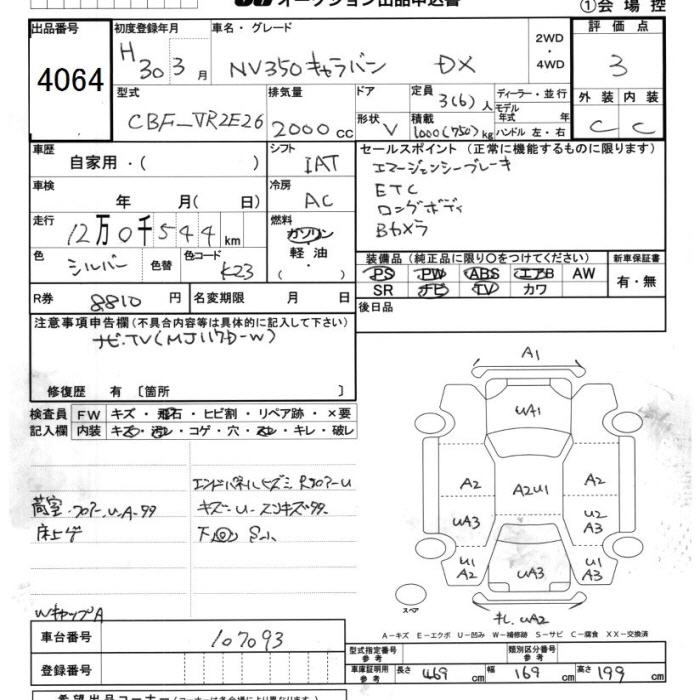 オークション出品申込書
①会場控
出品番号 4064
初度登録年月 H30 3月
車名・グレード NV350キャラバン DX
2WD・4WD
評価点 3
型式 CBF-VR2E26
排気量 2000cc
ドア
形状 V
定員 3(6)人
積載 1000(750)kg
ディーラー・並行
モデル年式 年
ハンドル 左・右
外装 C 内装 C
車歴 自家用・( )
シフト IAT
セールスポイント(正常に機能するものに限ります)
エマージェンシーブレーキ
ETC
ロングボディ
Bカメラ
車検 年 月( 日)
冷房 AC
走行 12万0千544km
燃料 ガソリン 軽油 ( ・ )
色 シルバー 色替 色コード K23
装備品(純正品に限り○をつけてください)
PS PW ABS エアB AW
SR ナビ TV カワ
新車保証書 有・無
R券 8810円 名変期限 月 日
後日品
注意事項申告欄(不具合内容等は具体的に記入して下さい)
ナビ.TV(MJ117D-W)
修復歴 有 〔箇所 〕
検査員記入欄
FW キズ・飛石・ヒビ割・リペア跡・×要
内装 キズ・汚レ・コゲ・穴・スレ・キレ・破レ
荷室・フロアーU.A.99
床上ゲ
WキャップA
下回 S小
A1
UA1
A2
A2U1
A2
UA3
U2
A3
U1
A2
UA3
U1
A3
キレ.UA2
スペア
A-キズ E-エクボ U-凹み W-補修跡 S-サビ C-腐食 XX-交換済
車台番号 107093
登録番号
型式指定番号 参考
類別区分番号 参考
車庫証明用 参考 長さ 469cm 幅 169cm 高さ 199cm
希望出品コーナー